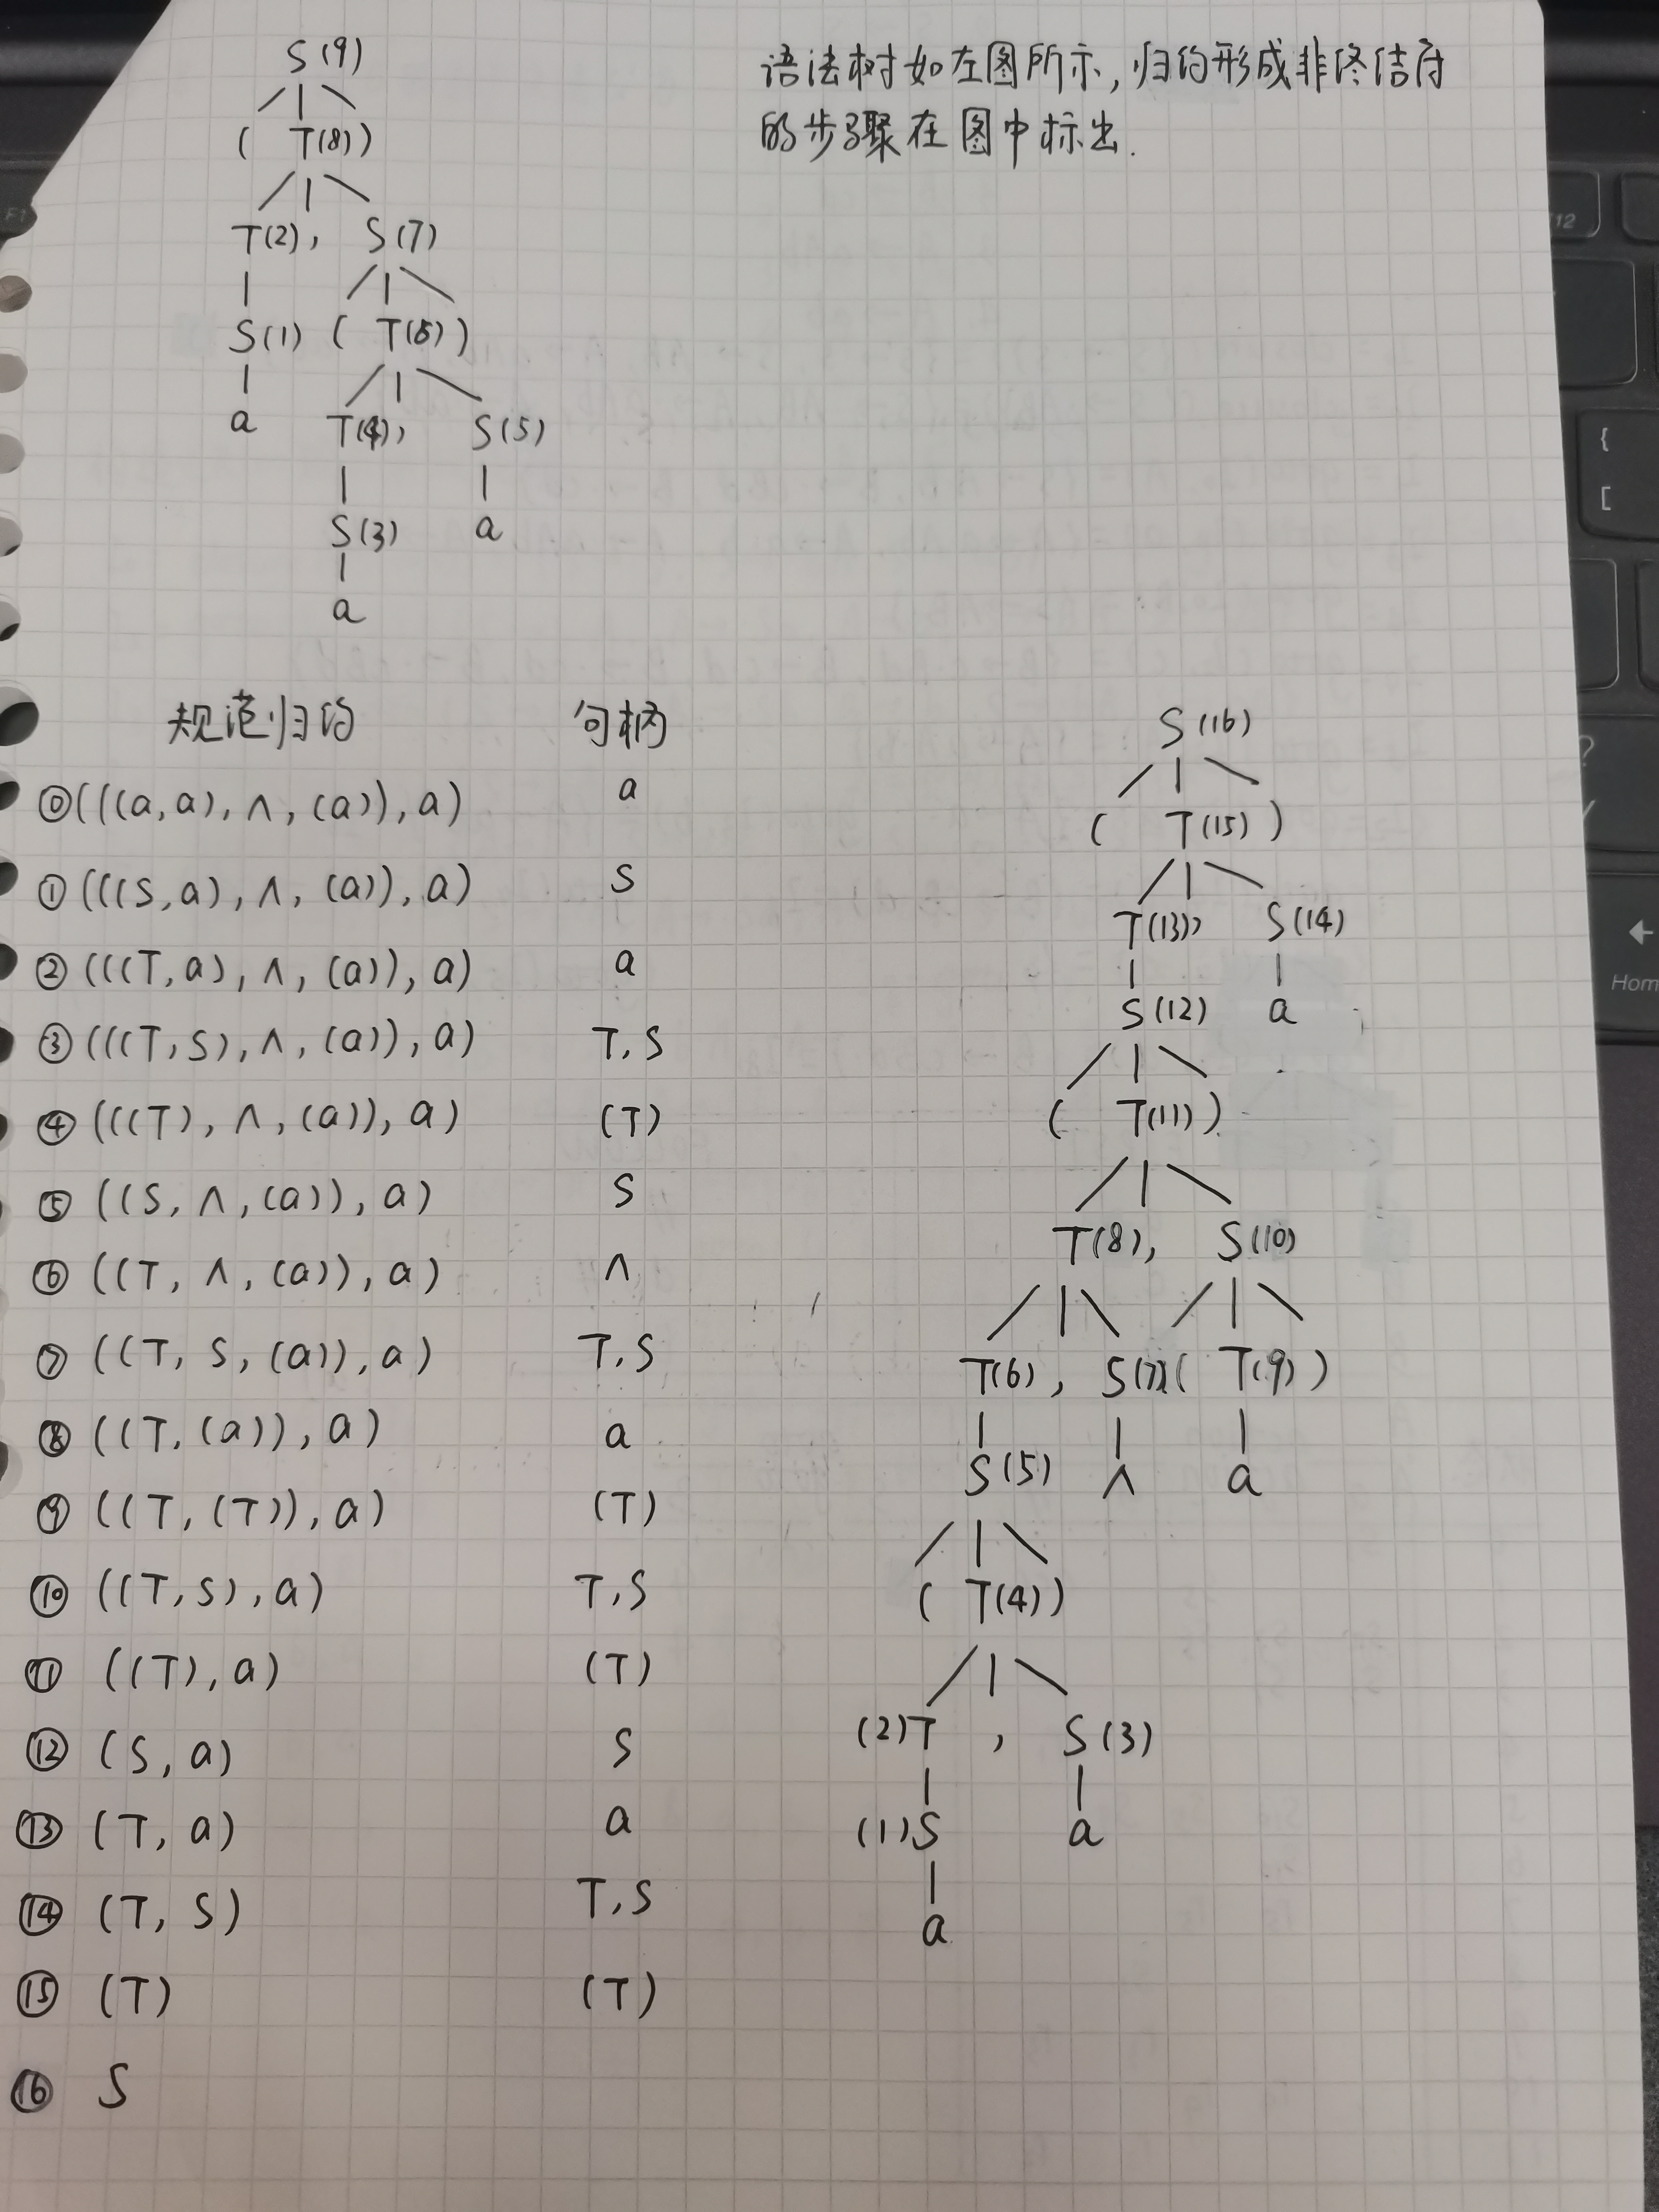 S(9)
( T(8) )
T(2) , S(7)
S(1) ( T(6) )
a T(4) , S(5)
S(3) a
a
语法树如左图所示, 归约形成非终结符
的步骤在图中标出.
规范归约 句柄
⓪(((a,a),∧,(a)),a) a
①(((S,a),∧,(a)),a) S
②(((T,a),∧,(a)),a) a
③(((T,S),∧,(a)),a) T,S
④(((T),∧,(a)),a) (T)
⑤((S,∧,(a)),a) S
⑥((T,∧,(a)),a) ∧
⑦((T,S,(a)),a) T,S
⑧((T,(a)),a) a
⑨((T,(T)),a) (T)
⑩((T,S),a) T,S
⑪((T),a) (T)
⑫(S,a) S
⑬(T,a) a
⑭(T,S) T,S
⑮(T) (T)
⑯ S
S(16)
( T(15) )
T(13) , S(14)
S(12) a
( T(11) )
T(8) , S(10)
T(6) , S(7) ( T(9) )
S(5) ∧ a
( T(4) )
(2)T , S(3)
(1)S a
a
F1
12
{
[
?
/
←
Hom